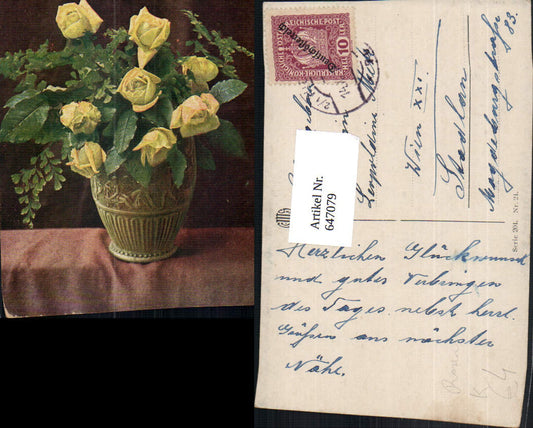 KAISERLICHE KÖN
REICHISCHE POST
10
Deutschösterreich
Leopoldine
Wien XXI.
Stadlau
Magdeburgstraße
S 83.
Artikel Nr.
647079
Serie 204. Nr. 21.
Herzlichen Glückwunsch
und gutes Verbringen
des Tages nebst herzl.
Grüßen aus nächster
Nähe.